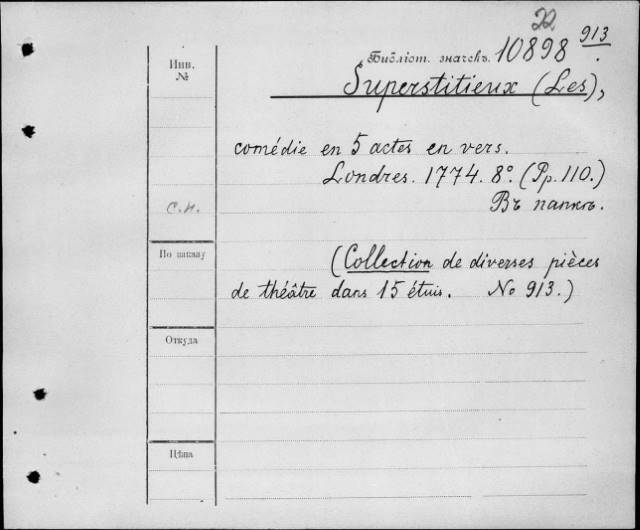 22
913
Библіот. значекъ. 10898
Инв.
№
Superstitieux (Les),
comédie en 5 actes en vers.
Londres. 1774. 8°. (Pp. 110.)
С.н.
Въ папкѣ.
По заказу
(Collection de diverses pièces
de théâtre dans 15 étuis. No 913.)
Откуда
Цѣна